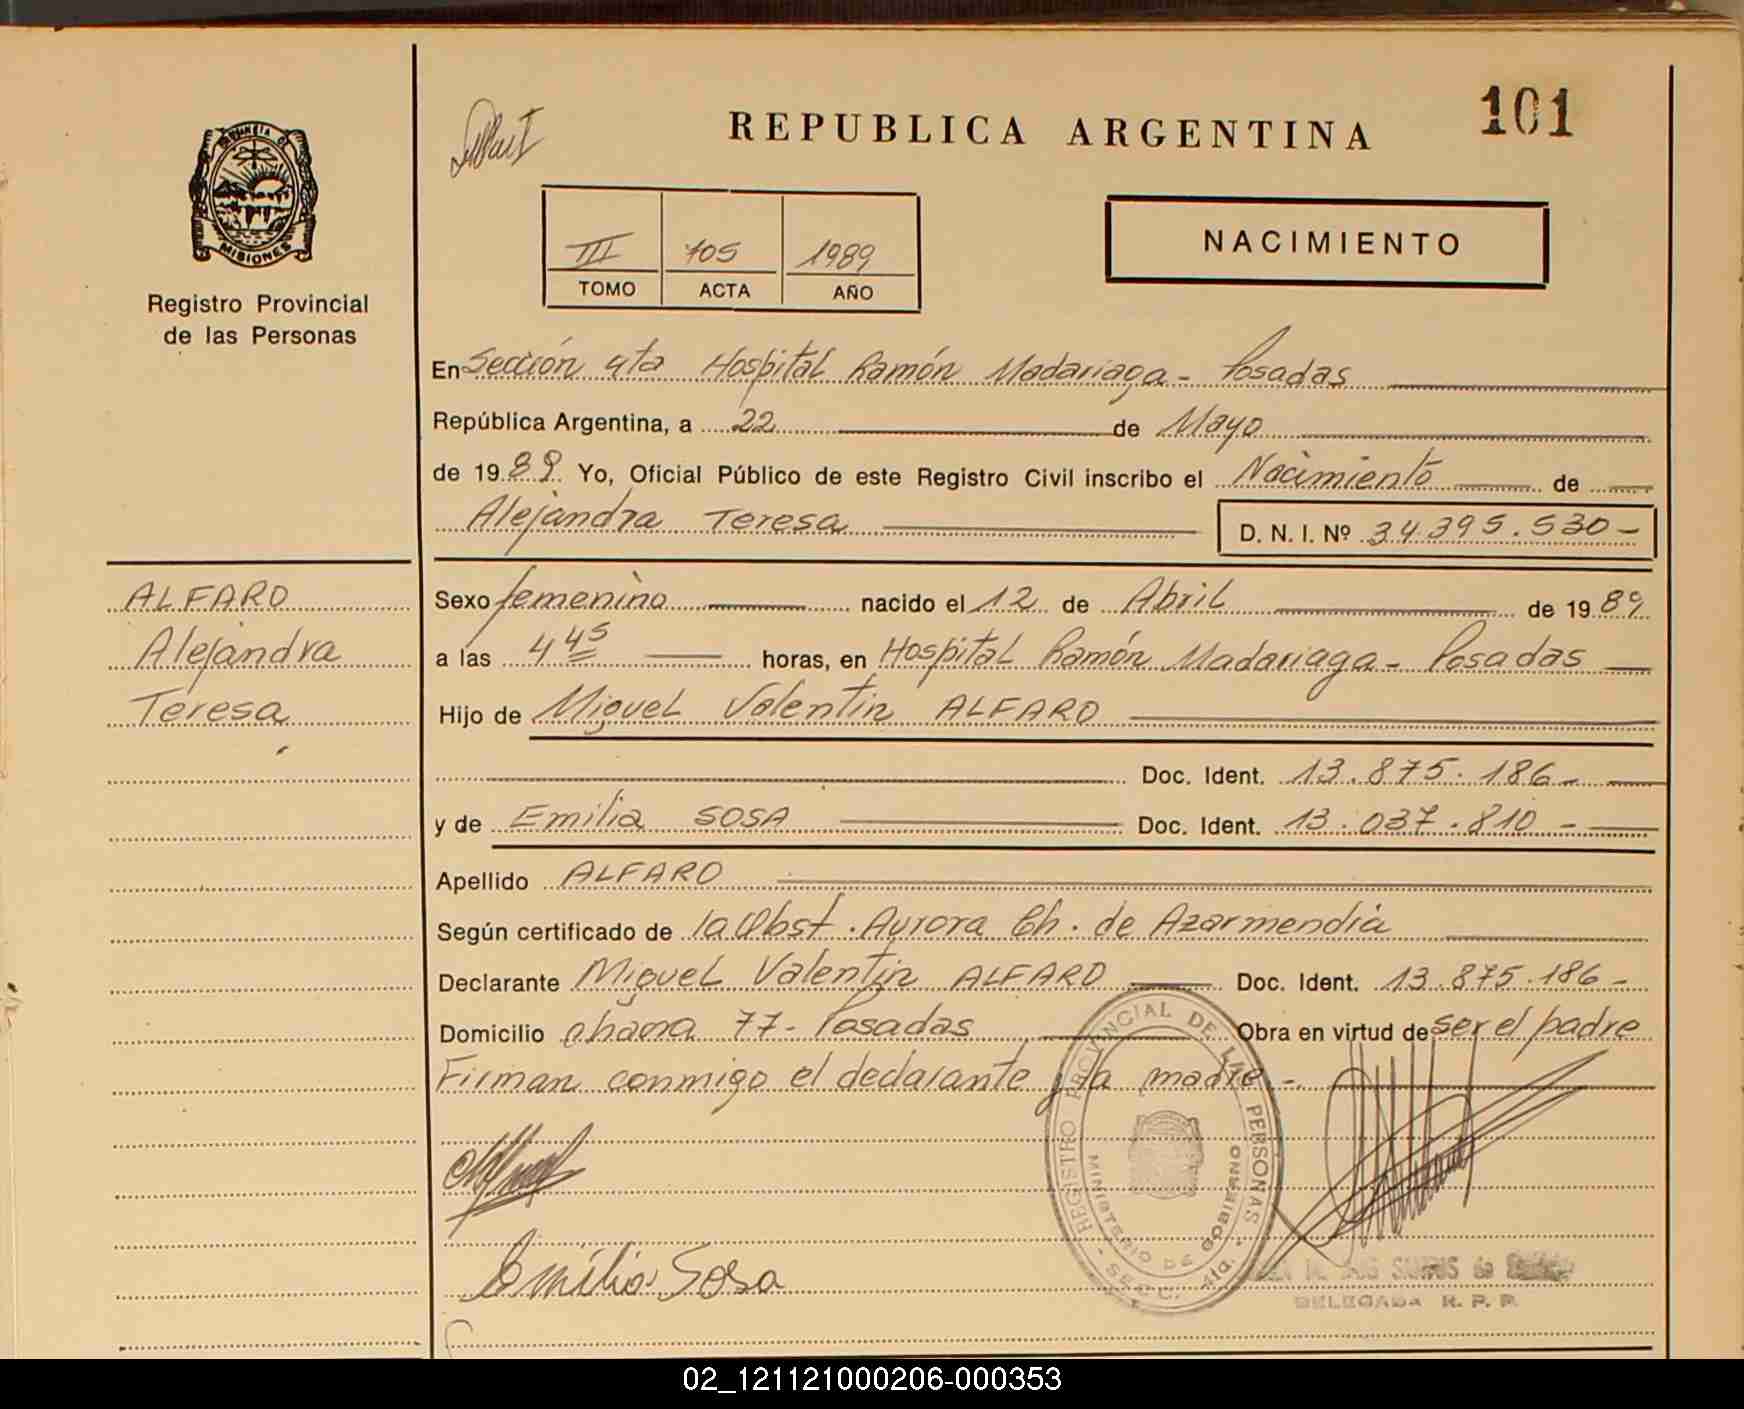 101
REPUBLICA ARGENTINA
NACIMIENTO
PROVINCIA DE
MISIONES
Registro Provincial
de las Personas
III 105 1989
TOMO ACTA AÑO
En Sección 4ta Hospital Ramón Madariaga - Posadas
República Argentina, a 22 de Mayo
de 1989. Yo, Oficial Público de este Registro Civil inscribo el Nacimiento de
Alejandra Teresa D. N. I. Nº 34.395.530-
ALFARO
Alejandra
Teresa
Sexo femenino nacido el 12 de Abril de 1989
a las 4 45 horas, en Hospital Ramón Madariaga - Posadas
Hijo de Miguel Valentin ALFARO
Doc. Ident. 13.875.186-
y de Emilia SOSA Doc. Ident. 13.037.810-
Apellido ALFARO
Según certificado de la Obst. Aurora Ch. de Azarmendia
Declarante Miguel Valentin ALFARO Doc. Ident. 13.875.186-
Domicilio Chama 77- Posadas Obra en virtud de ser el padre
Firman conmigo el declarante y la madre -
REGISTRO PROVINCIAL DE LAS PERSONAS
MINISTERIO DE GOBIERNO
SECC. 4ta.
Emilia Sosa
DELEGADA R. P. P.
02_121121000206-000353